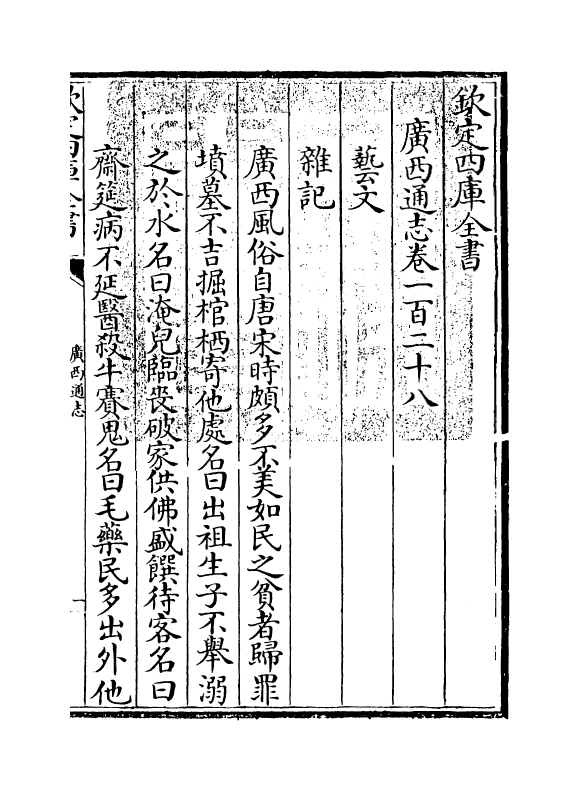 欽定四庫全書
廣西通志卷一百二十八
藝文
雜記
廣西風俗自唐宋時頗多不美如民之貧者歸罪
墳墓不吉掘棺栖寄他處名曰出祖生子不舉溺
之於水名曰淹兒臨喪破家供佛盛饌待客名曰
齋筵病不延醫殺牛賽鬼名曰毛藥民多出外他
欽定四庫全書
廣西通志
一